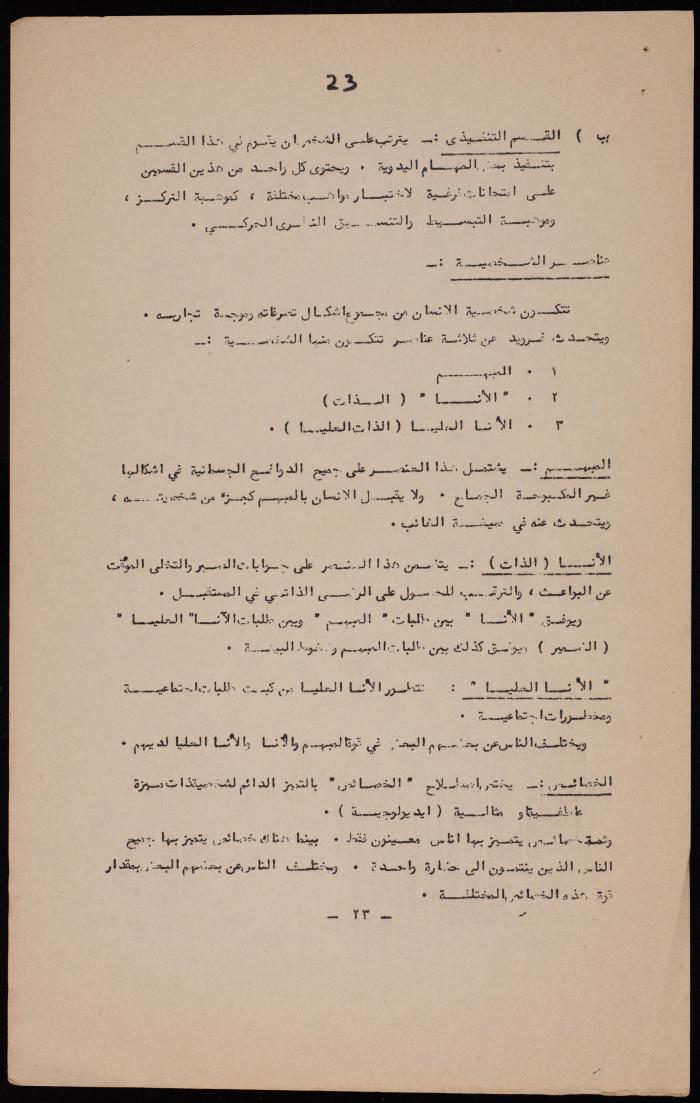 23
ب ) القسم التنفيذى :ـ يترتب على الشخص ان يقوم في هذا القسم
بتنفيذ بعض المهام اليدوية ٠ ويحتوى كل واحد من هذين القسمين
على امتحانات فرعية لاختبار مواهب مختلفة ، كموهبة التركز ،
وموهبة التبسيط والتنسيق الحركي ٠
عناصر الشخصية :ـ
تتكون شخصية الانسان من مجموع اشكال تصرفاته وموجة تجاربه ٠
ويتحدث فرويد عن ثلاثة عناصر تتكون منها الشخصية :ـ
١ ٠ المبهم
٢ ٠ " الأنا " ( الذات )
٣ ٠ الأنا العليا ( الذات العليا ) ٠
المبهم :ـ يشتمل هذا العنصر على جميع الدوافع الجسمانية في اشكالها
غير المكبوحة الجماح ٠ ولا يقبل الانسان بالمبهم كجزء من شخصيته ،
ويتحدث عنه في صيغة الغائب ٠
الأنا ( الذات ) :ـ يتضمن هذا العنصر على جوابات الصبر والتخلى المؤقت
عن البواعث ، والترتيب للحصول على الرضى الذاتي في المستقبل ٠
ويوفق " الأنا " بين طلبات " المبهم " وبين طلبات الآنا " العليا "
( الضمير ) ويوفق كذلك بين طلبات المبهم وضغوط البيئة ٠
" الأنا العليا " : تتطور الأنا العليا من كبت طلبات اجتماعية
ومحظورات اجتماعية ٠
ويختلف الناس عن بعضهم البعض في قوة المبهم والأنا والأنا العليا لديهم ٠
الخصائص :ـ يختص اصطلاح " الخصائص " بالتميز الدائم لشخصية ذات ميزة
عاطفية او مثالية ( ايديولوجية ) ٠
وثمة خصائص يتميز بها اناس معينون فقط ٠ بينما هناك خصائص يتميز بها جميع
الناس الذين ينتمون الى حضارة واحدة ٠ ويختلف الناس عن بعضهم البعض بمقدار
قوة هذه الخصائص المختلفة ٠
ـ ٢٣ ـ